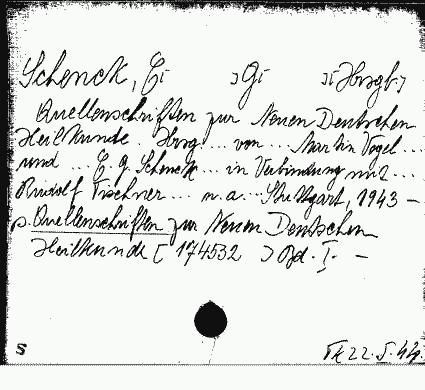 Schenck, E[ ]G[ ][Hrsgb.]
Quellenschriften zur Neuen Deutschen
Heilkunde. Hrsg... von... Martin Vogel...
und ... E. G. Schenck... in Verbindung mit...
Rudolf Tischner... u. a... Stuttgart, 1943 -
s. Quellenschriften zur Neuen Deutschen
Heilkunde [ 174532 ] Bd. I. -
S 22. 5. 44.